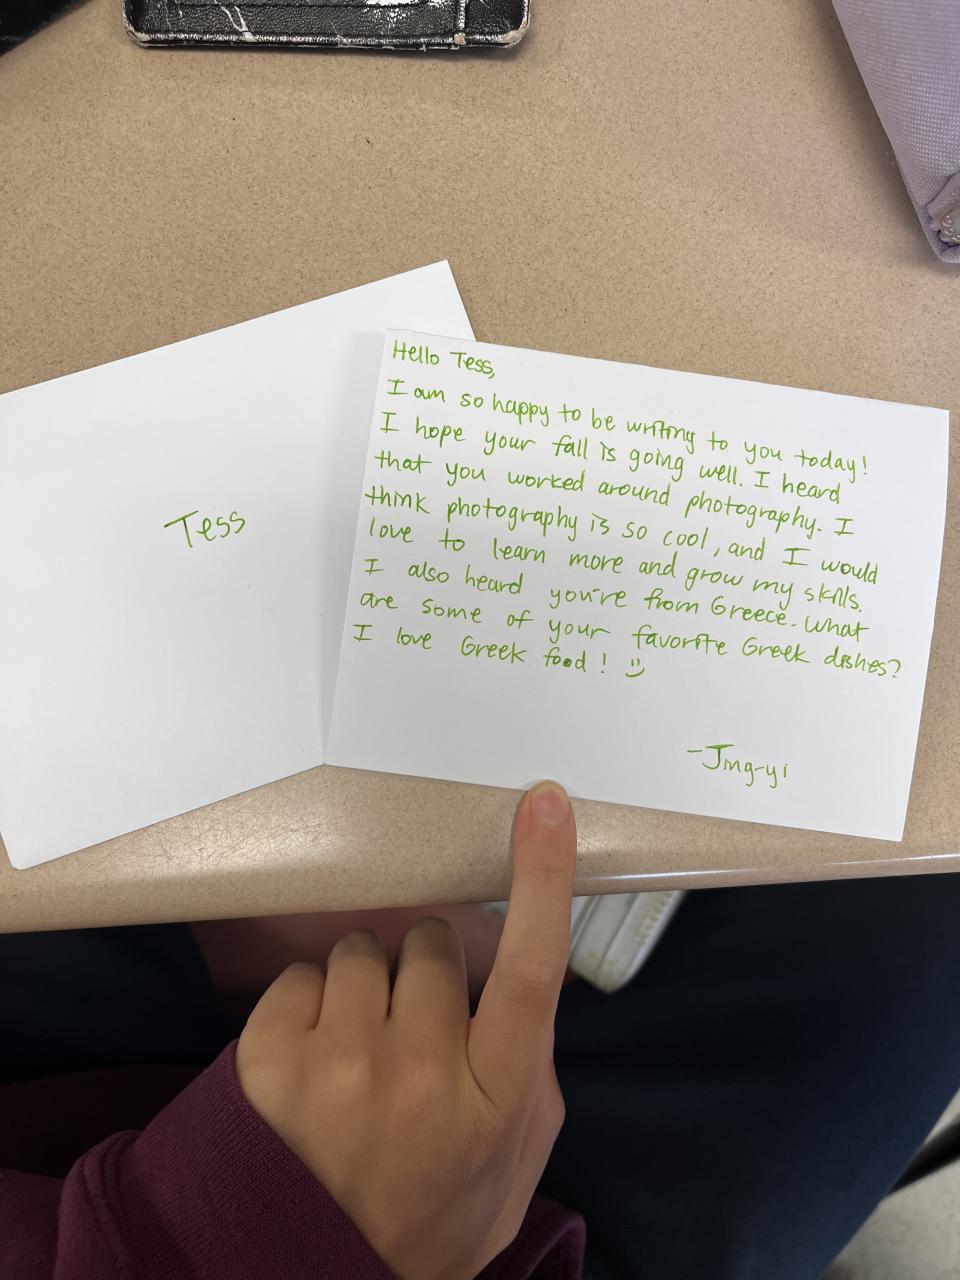 Tess
Hello Tess,
I am so happy to be writing to you today!
I hope your fall is going well. I heard
that you worked around photography. I
think photography is so cool, and I would
love to learn more and grow my skills.
I also heard you're from Greece. What
are some of your favorite Greek dishes?
I love Greek food! :)
-Jing-yi